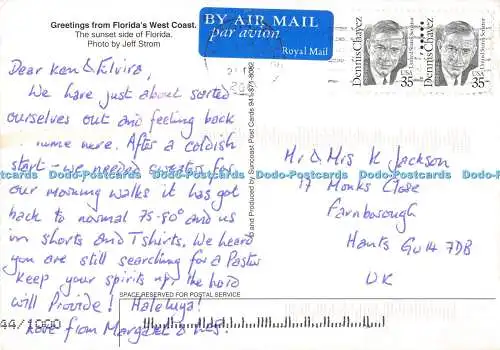 Greetings from Florida's West Coast.
The sunset side of Florida.
Photo by Jeff Strom
BY AIR MAIL
par avion
Royal Mail
Dennis Chavez
United States Senator
35
USA
Dennis Chavez
United States Senator
35
USA
Dear Ken & Elvira,
We have just about sorted
ourselves out and feeling back
home here. After a coldish
start - we needed sweaters for
our morning walks it has got
back to normal 75-80° and us
in shorts and T shirts. We heard
you are still searching for a Pastor
keep your spirits up, the Lord
will Provide! Haleluya!
Love from Margaret &
Mr & Mrs K Jackson
17 Monks Close
Farnborough
Hants GU14 7DB
UK
and Produced by Suncoast Post Cards 941-371-8092
SPACE RESERVED FOR POSTAL SERVICE
44/1000
Dodo-Postcards Dodo-Postcards Dodo-Postcards Dodo-Postcards
Dodo-Postcards Dodo-Postcards Dodo-Postcards Dodo-Postcards